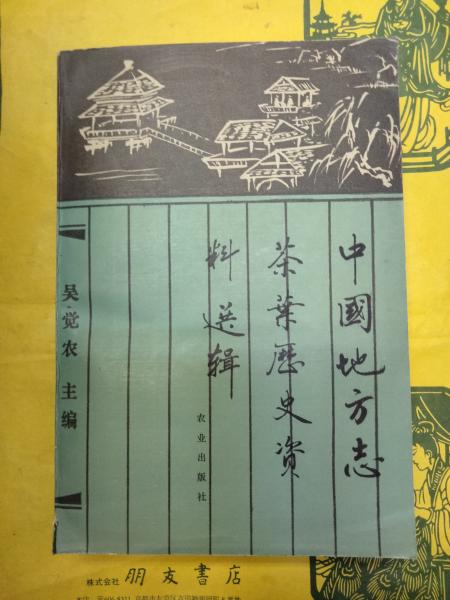 中國地方志
茶葉歷史資
料选辑
农业出版社
吴觉农 主编
株式会社 朋友書店